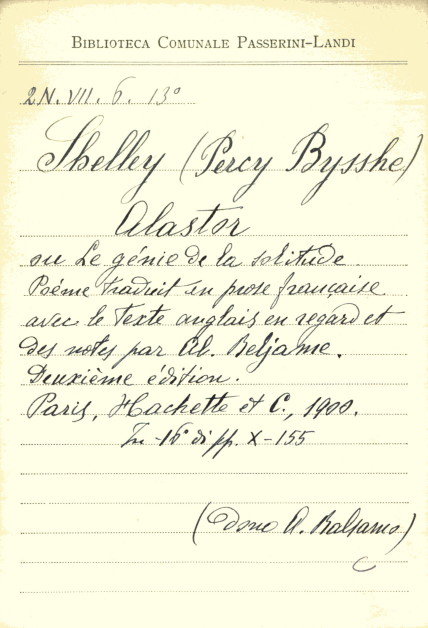 BIBLIOTECA COMUNALE PASSERINI-LANDI
2N. VII. 6. 13°
Shelley (Percy Bysshe)
Alastor
ou Le génie de la solitude
Poéme traduit en prose française
avec le texte anglais en regard et
des notes par Al. Beljame.
Deuxième édition.
Paris, Hachette et C., 1900.
In-16° di pp. X-155
(Dono A. Balsamo)